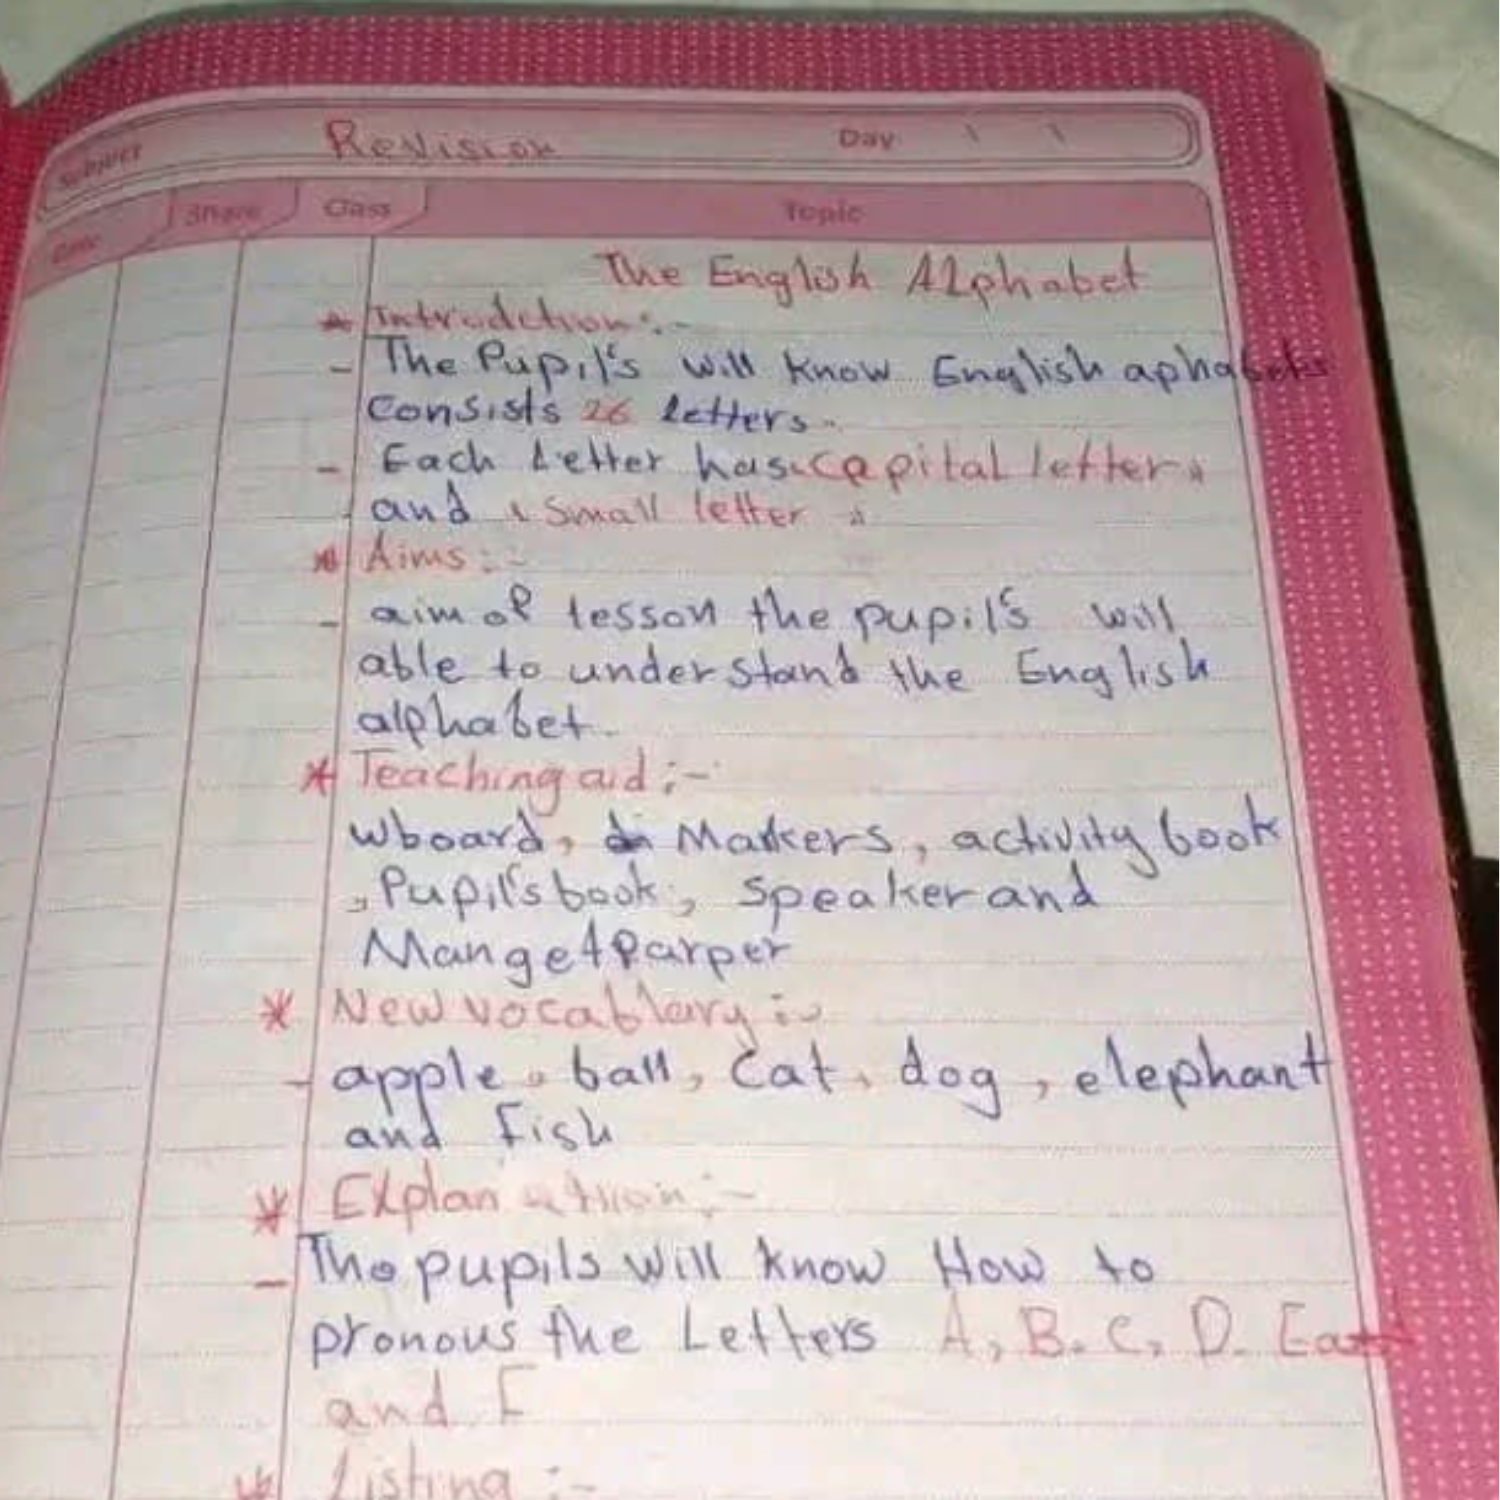 Subject Revision Day \ \
Date Share Class Topic
The English Alphabet
* Introdction:-
- The Pupil's will know English aphabets
Consists 26 letters.
- Each Letter has capital letter
and small letter
* Aims:-
- aim of lesson the pupil's will
able to understand the English
alphabet.
* Teaching aid:-
wboard, Markers, activity book
, Pupil's book, Speaker and
Manget Parper
* New vocablary:-
- apple, ball, Cat, dog, elephant
and Fish
* Explanation:-
- The pupils will know How to
pronous the Letters A, B. C, D. E
and F
* Listing:-